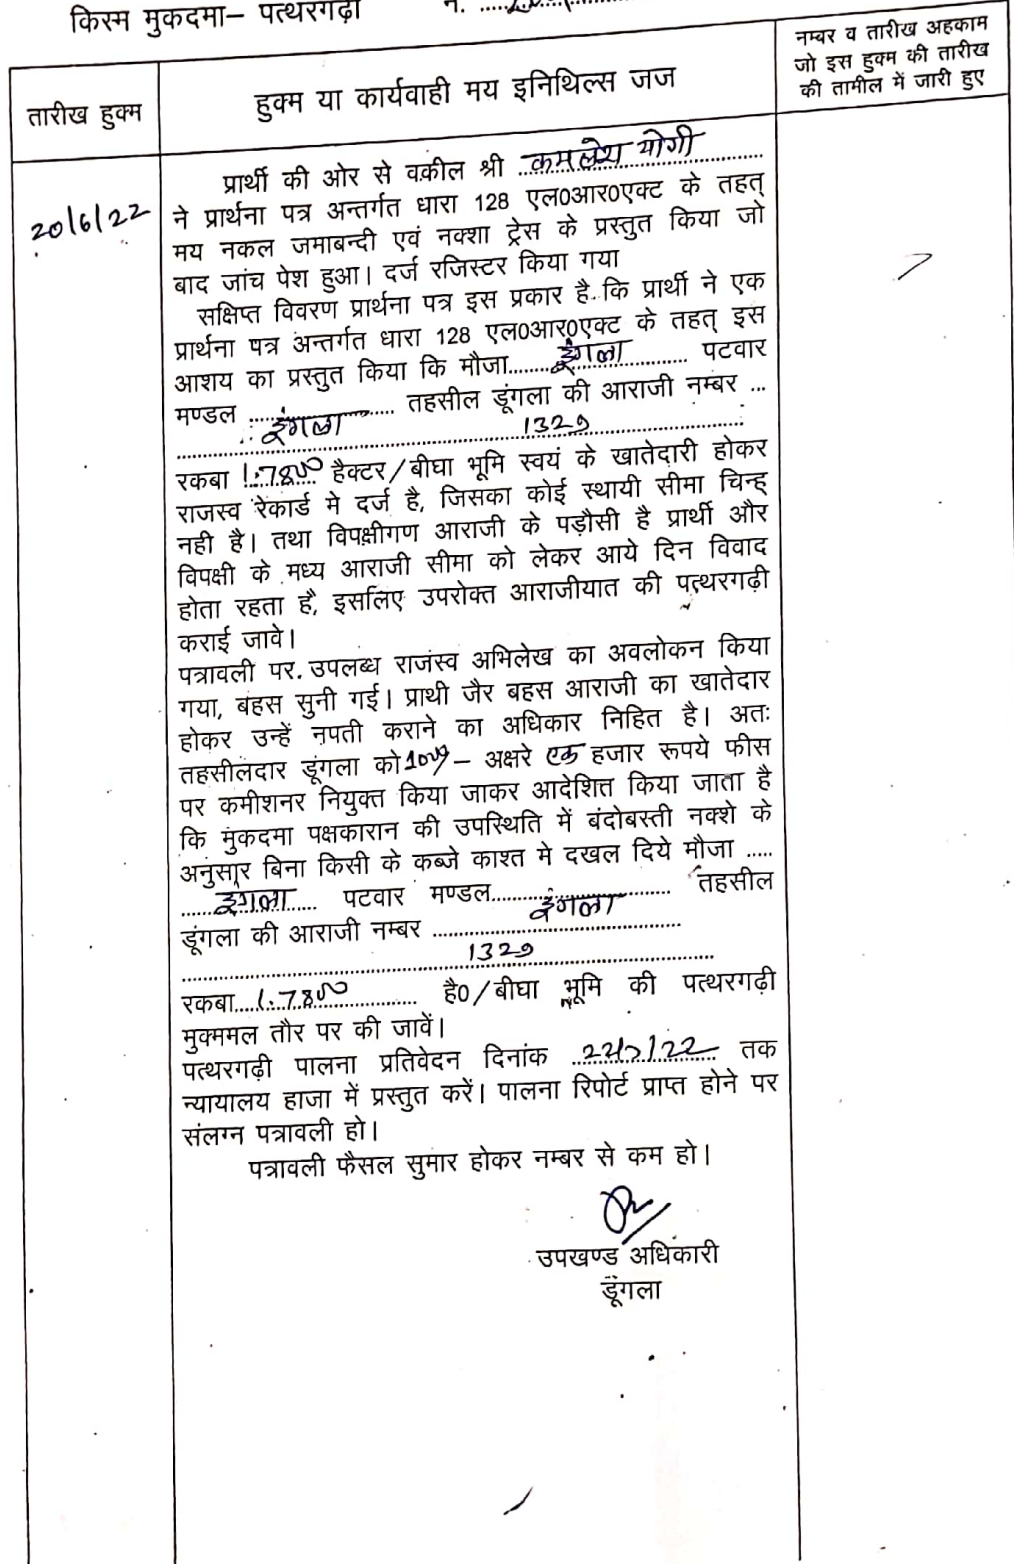 किस्म मुकदमा– पत्थरगढ़ी नं.
तारीख हुक्म
हुक्म या कार्यवाही मय इनिथिल्स जज
नम्बर व तारीख अहकाम
जो इस हुक्म की तारीख
की तामील में जारी हुए
20/6/22
प्रार्थी की ओर से वकील श्री कमलेश योगी
ने प्रार्थना पत्र अन्तर्गत धारा 128 एल0आर0एक्ट के तहत्
मय नकल जमाबन्दी एवं नक्शा ट्रेस के प्रस्तुत किया जो
बाद जांच पेश हुआ। दर्ज रजिस्टर किया गया
सक्षिप्त विवरण प्रार्थना पत्र इस प्रकार है कि प्रार्थी ने एक
प्रार्थना पत्र अन्तर्गत धारा 128 एल0आर0एक्ट के तहत् इस
आशय का प्रस्तुत किया कि मौजा........डूंगला........... पटवार
मण्डल ..................... तहसील डूंगला की आराजी नम्बर ...
डूंगला 1329
रकबा 1.7800 हैक्टर/बीघा भूमि स्वयं के खातेदारी होकर
राजस्व रेकार्ड मे दर्ज है, जिसका कोई स्थायी सीमा चिन्ह्
नही है। तथा विपक्षीगण आराजी के पड़ौसी है प्रार्थी और
विपक्षी के मध्य आराजी सीमा को लेकर आये दिन विवाद
होता रहता है, इसलिए उपरोक्त आराजीयात की पत्थरगढ़ी
कराई जावे।
पत्रावली पर उपलब्ध राजस्व अभिलेख का अवलोकन किया
गया, बहस सुनी गई। प्राथी जैर बहस आराजी का खातेदार
होकर उन्हें नपती कराने का अधिकार निहित है। अतः
तहसीलदार डूंगला को – अक्षरे एक हजार रूपये फीस
पर कमीशनर नियुक्त किया जाकर आदेशित्त किया जाता है
कि मुंकदमा पक्षकारान की उपस्थिति में बंदोबस्ती नक्शे के
अनुसार बिना किसी के कब्जे काश्त मे दखल दिये मौजा .....
.......डूंगला...... पटवार मण्डल........................... तहसील
डूंगला की आराजी नम्बर ......डूंगला......
1329
रकबा....1.7800............ है0/बीघा भूमि की पत्थरगढ़ी
मुक्ममल तौर पर की जावें।
पत्थरगढ़ी पालना प्रतिवेदन दिनांक ...22/7/22... तक
न्यायालय हाजा में प्रस्तुत करें। पालना रिपोर्ट प्राप्त होने पर
संलग्न पत्रावली हो।
पत्रावली फैसल सुमार होकर नम्बर से कम हो।
उपखण्ड अधिकारी
डूंगला